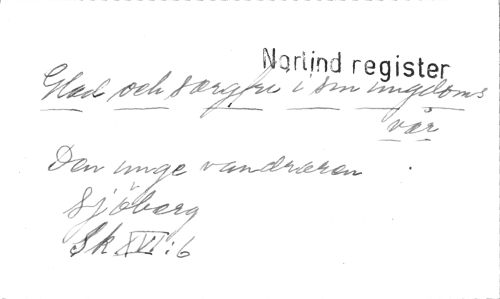 Norlind register
Glad och sorgfri i sin ungdoms
vår
Den unge vandraren
Sjöberg
Sk XVI:6